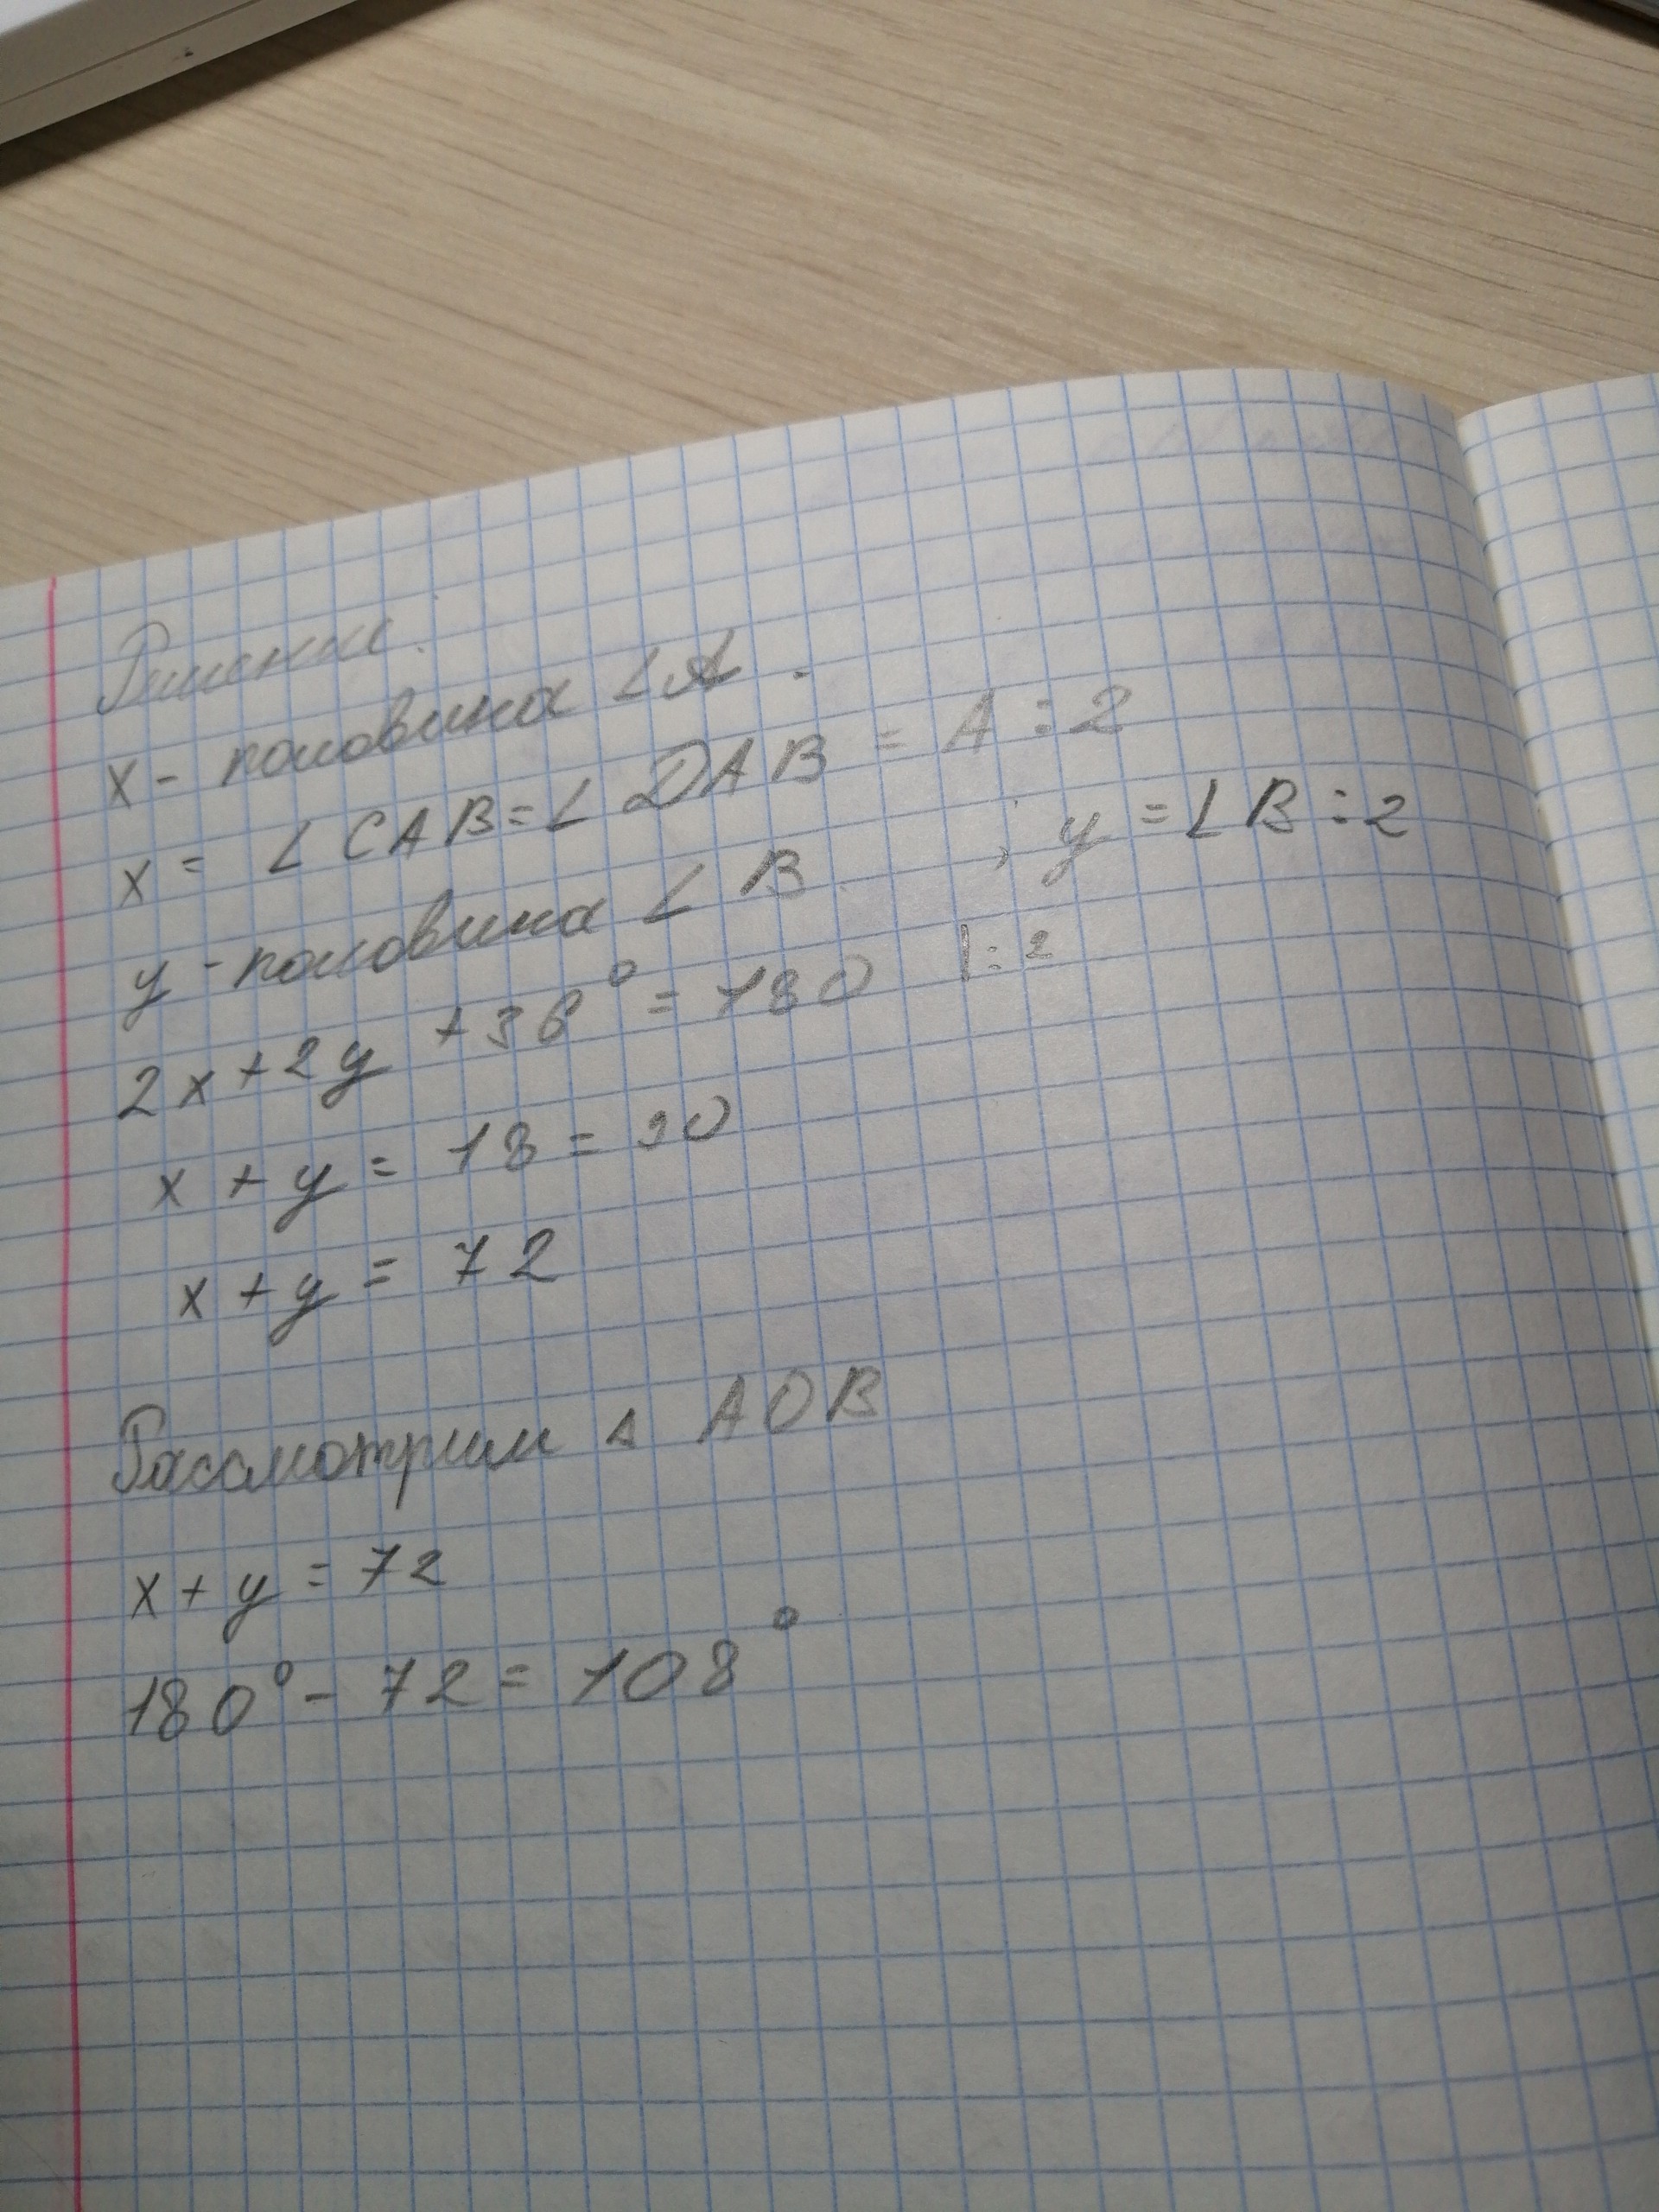 Решение.
x - половина ∠A.
x = ∠CAB = ∠DAB = A : 2
y - половина ∠B , y = ∠B : 2
2x + 2y + 36° = 180 |: 2
x + y = 18 = 90
x + y = 72
Рассмотрим △ AOB
x + y = 72
180° - 72 = 108°